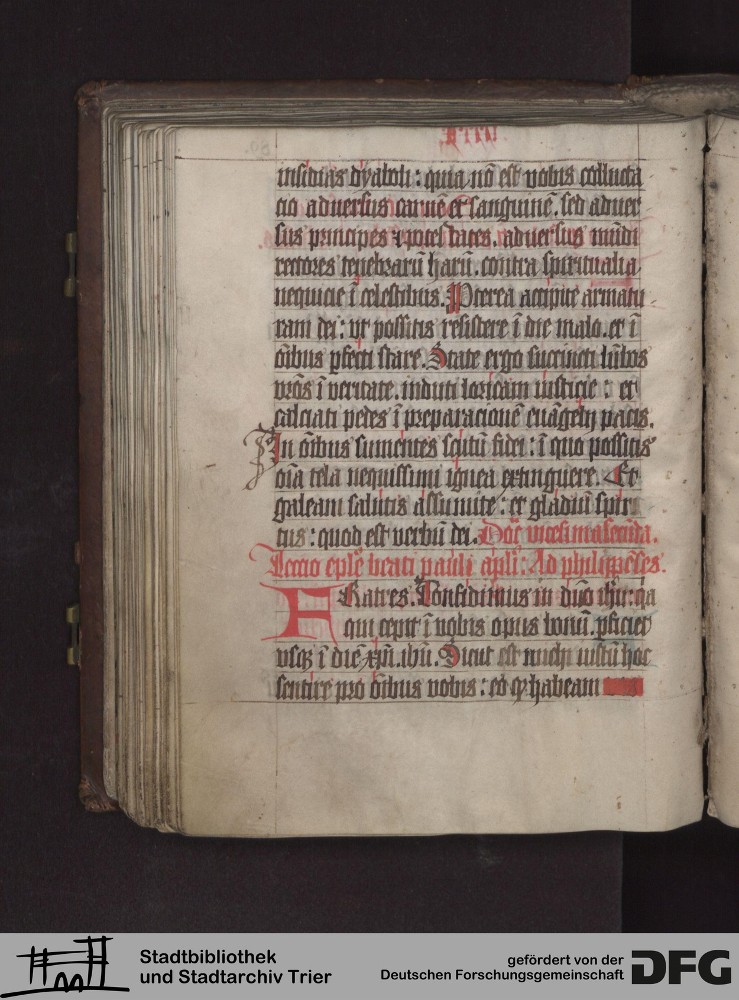 insidias dyaboli : quia nō est vobis colluctа
cio adversus carnē et sanguinē . sed adver
sus principes ⁊ potestates . adversus mūdi
rectores tenebrarū harū . contra spiritualia
nequicie ī celestibus . Pterea accipite armatu
ram dei : vt possitis resistere ī die malo . et ī
oībus pfecti stare . State ergo succincti lūbos
vrōs ī veritate . induti loricam iusticie : et
calciati pedes ī preparacionē euāgelij pacis .
In oībus sumentes scutū fidei : ī quo possitis
oīa tela nequissimi ignea extinguere . Et
galeam salutis assumite : et gladiū spiri
tus : quod est verbū dei . Doc̄ vicesimasecūda .
Leccio epsle beati pauli apli : Ad philippēses .
FRatres . Confidimus in dūo ihu : qa
qui cepit ī vobis opus bonū . pficiet
vsqꝫ ī diē xpī . ihū . Sicut est michi iustū hoc
sentire pro oībus vobis : eo qꝫ habeam
Stadtbibliothek
und Stadtarchiv Trier
gefördert von der
Deutschen Forschungsgemeinschaft
DFG